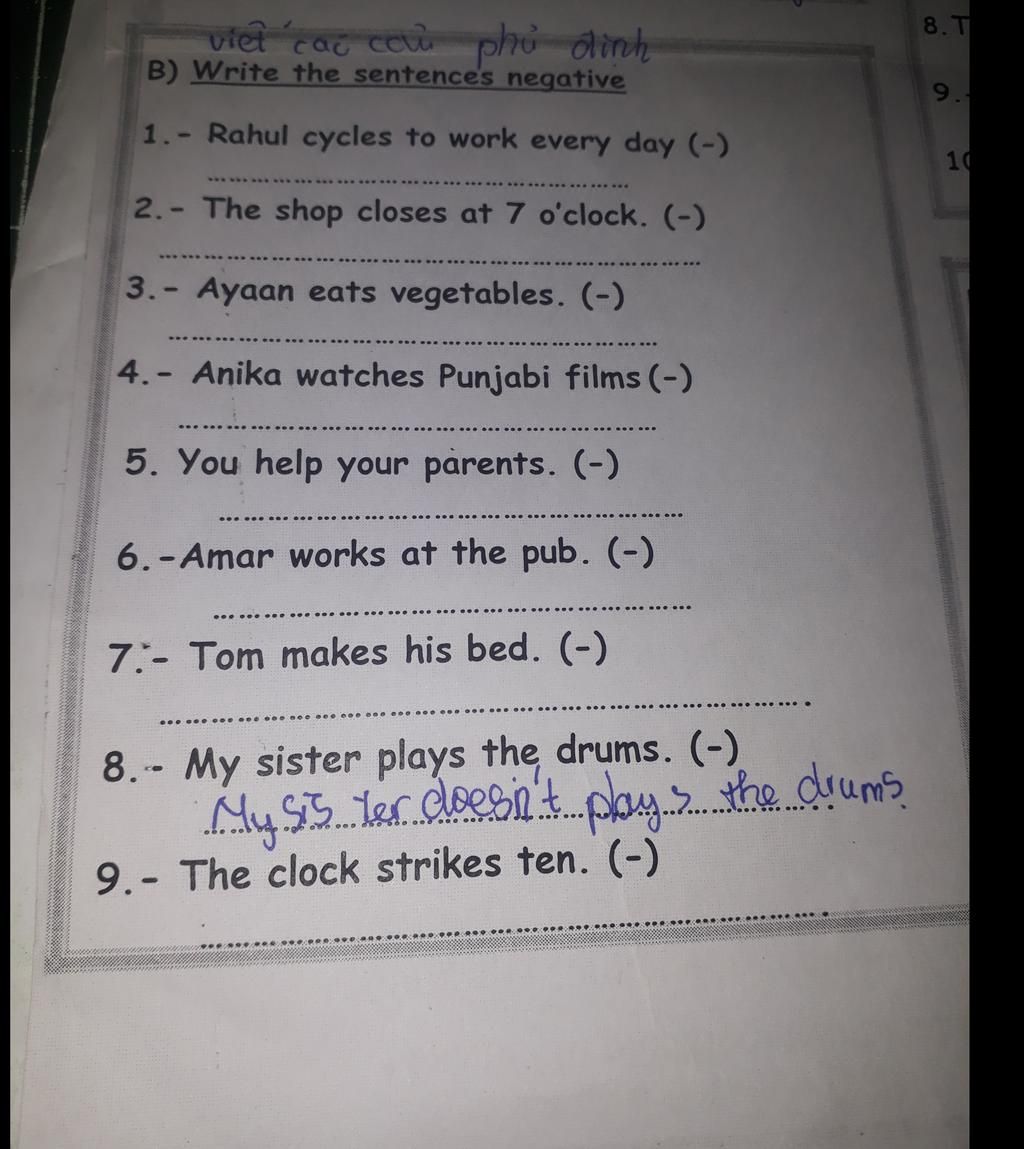 viết các câu phủ định
B) Write the sentences negative
1.- Rahul cycles to work every day (-)
2.- The shop closes at 7 o'clock. (-)
3.- Ayaan eats vegetables. (-)
4.- Anika watches Punjabi films (-)
5. You help your parents. (-)
6.-Amar works at the pub. (-)
7.- Tom makes his bed. (-)
8.- My sister plays the drums. (-)
My sister doesn't plays the drums.
9.- The clock strikes ten. (-)
8. T
9.-
10